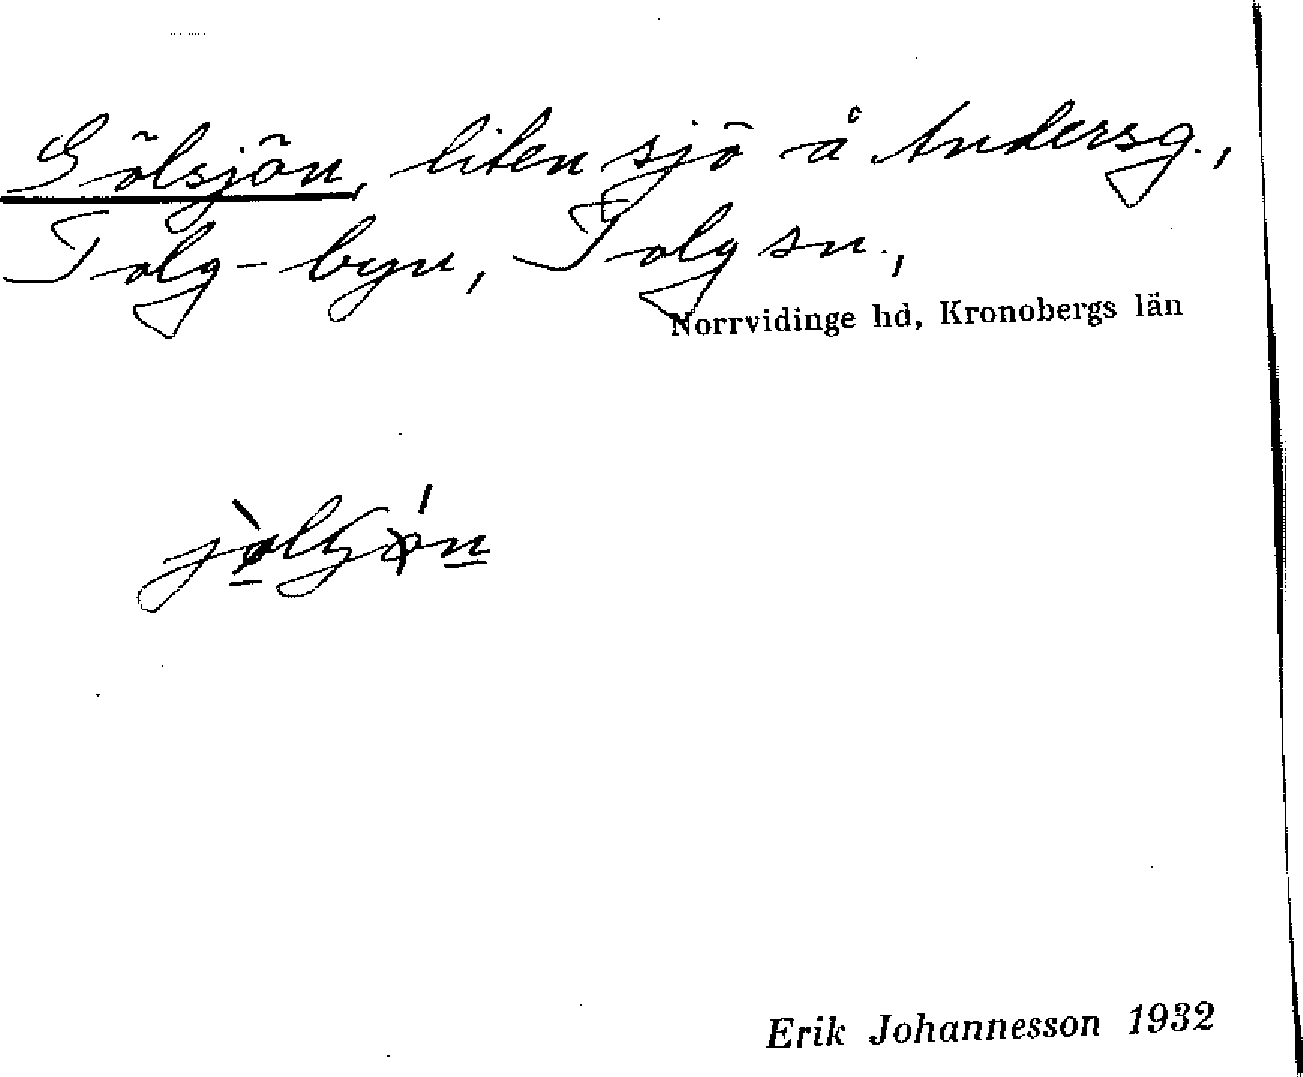 Gölsjön, liten sjö å Andersg.,
Tolg-byn, Tolg sn.,
Norrvidinge hd, Kronobergs län
Erik Johannesson 1932